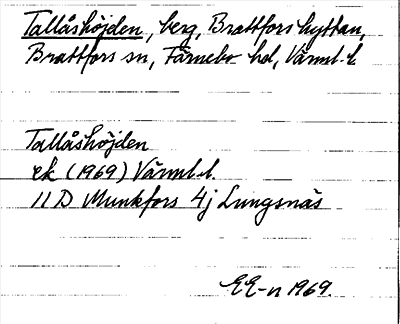 Tallåshöjden, berg, Brattforshyttan,
Brattfors sn, Färnebo hd, Värml. l.
Tallåshöjden
ek (1969) Värml. l.
11 D Munkfors 4j Lungsnäs
EE-n 1969.